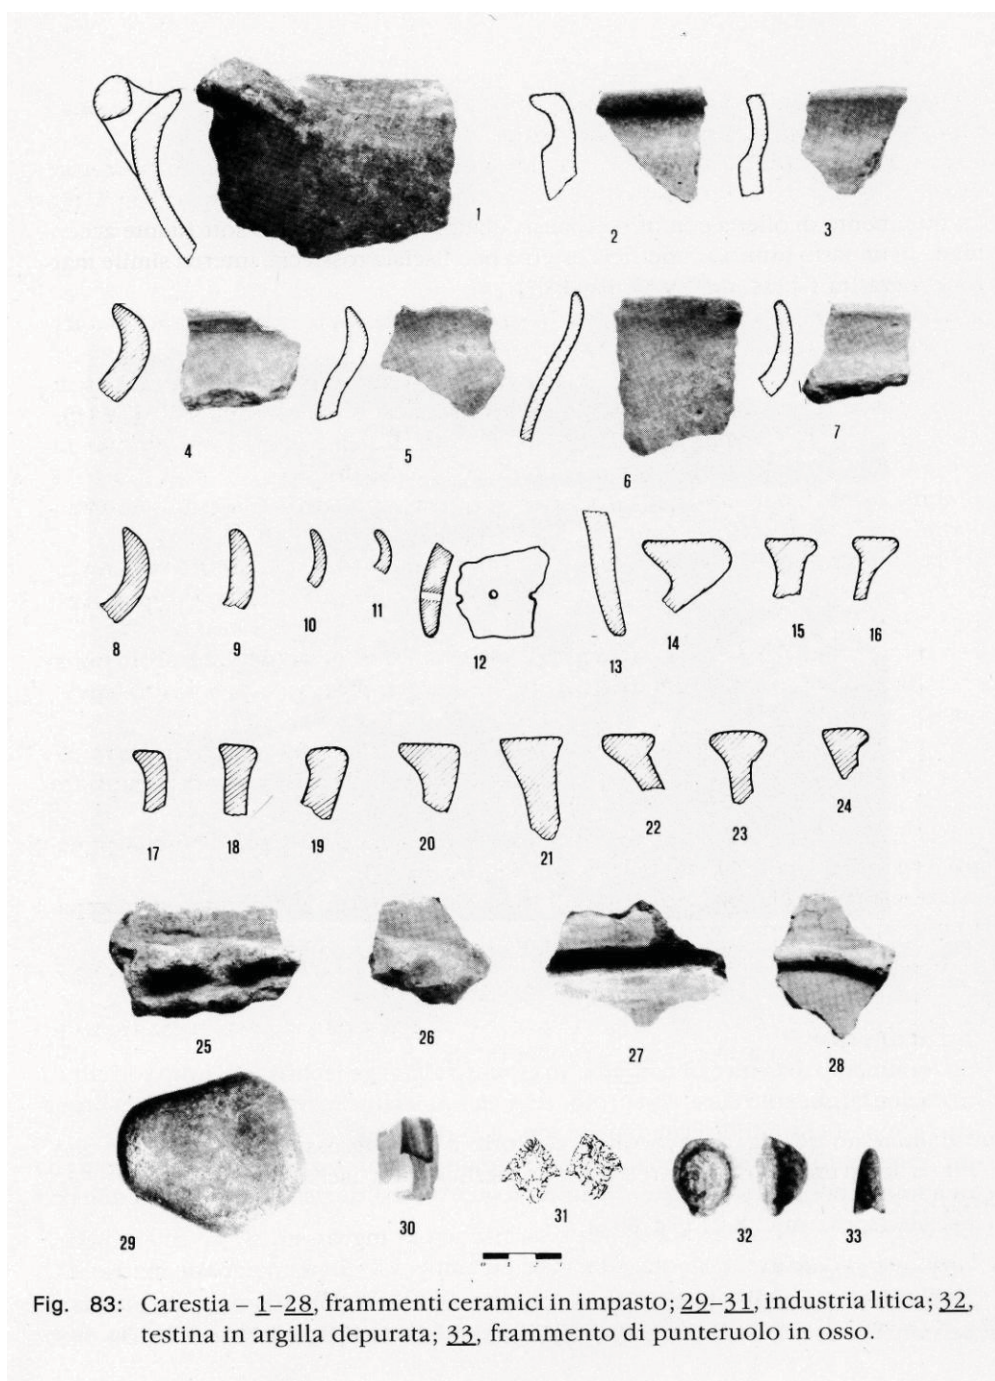 1
2
3
4
5
6
7
8
9
10
11
12
13
14
15
16
17
18
19
20
21
22
23
24
25
26
27
28
29
30
31
32
33
Fig. 83: Carestia – 1–28, frammenti ceramici in impasto; 29–31, industria litica; 32,
testina in argilla depurata; 33, frammento di punteruolo in osso.